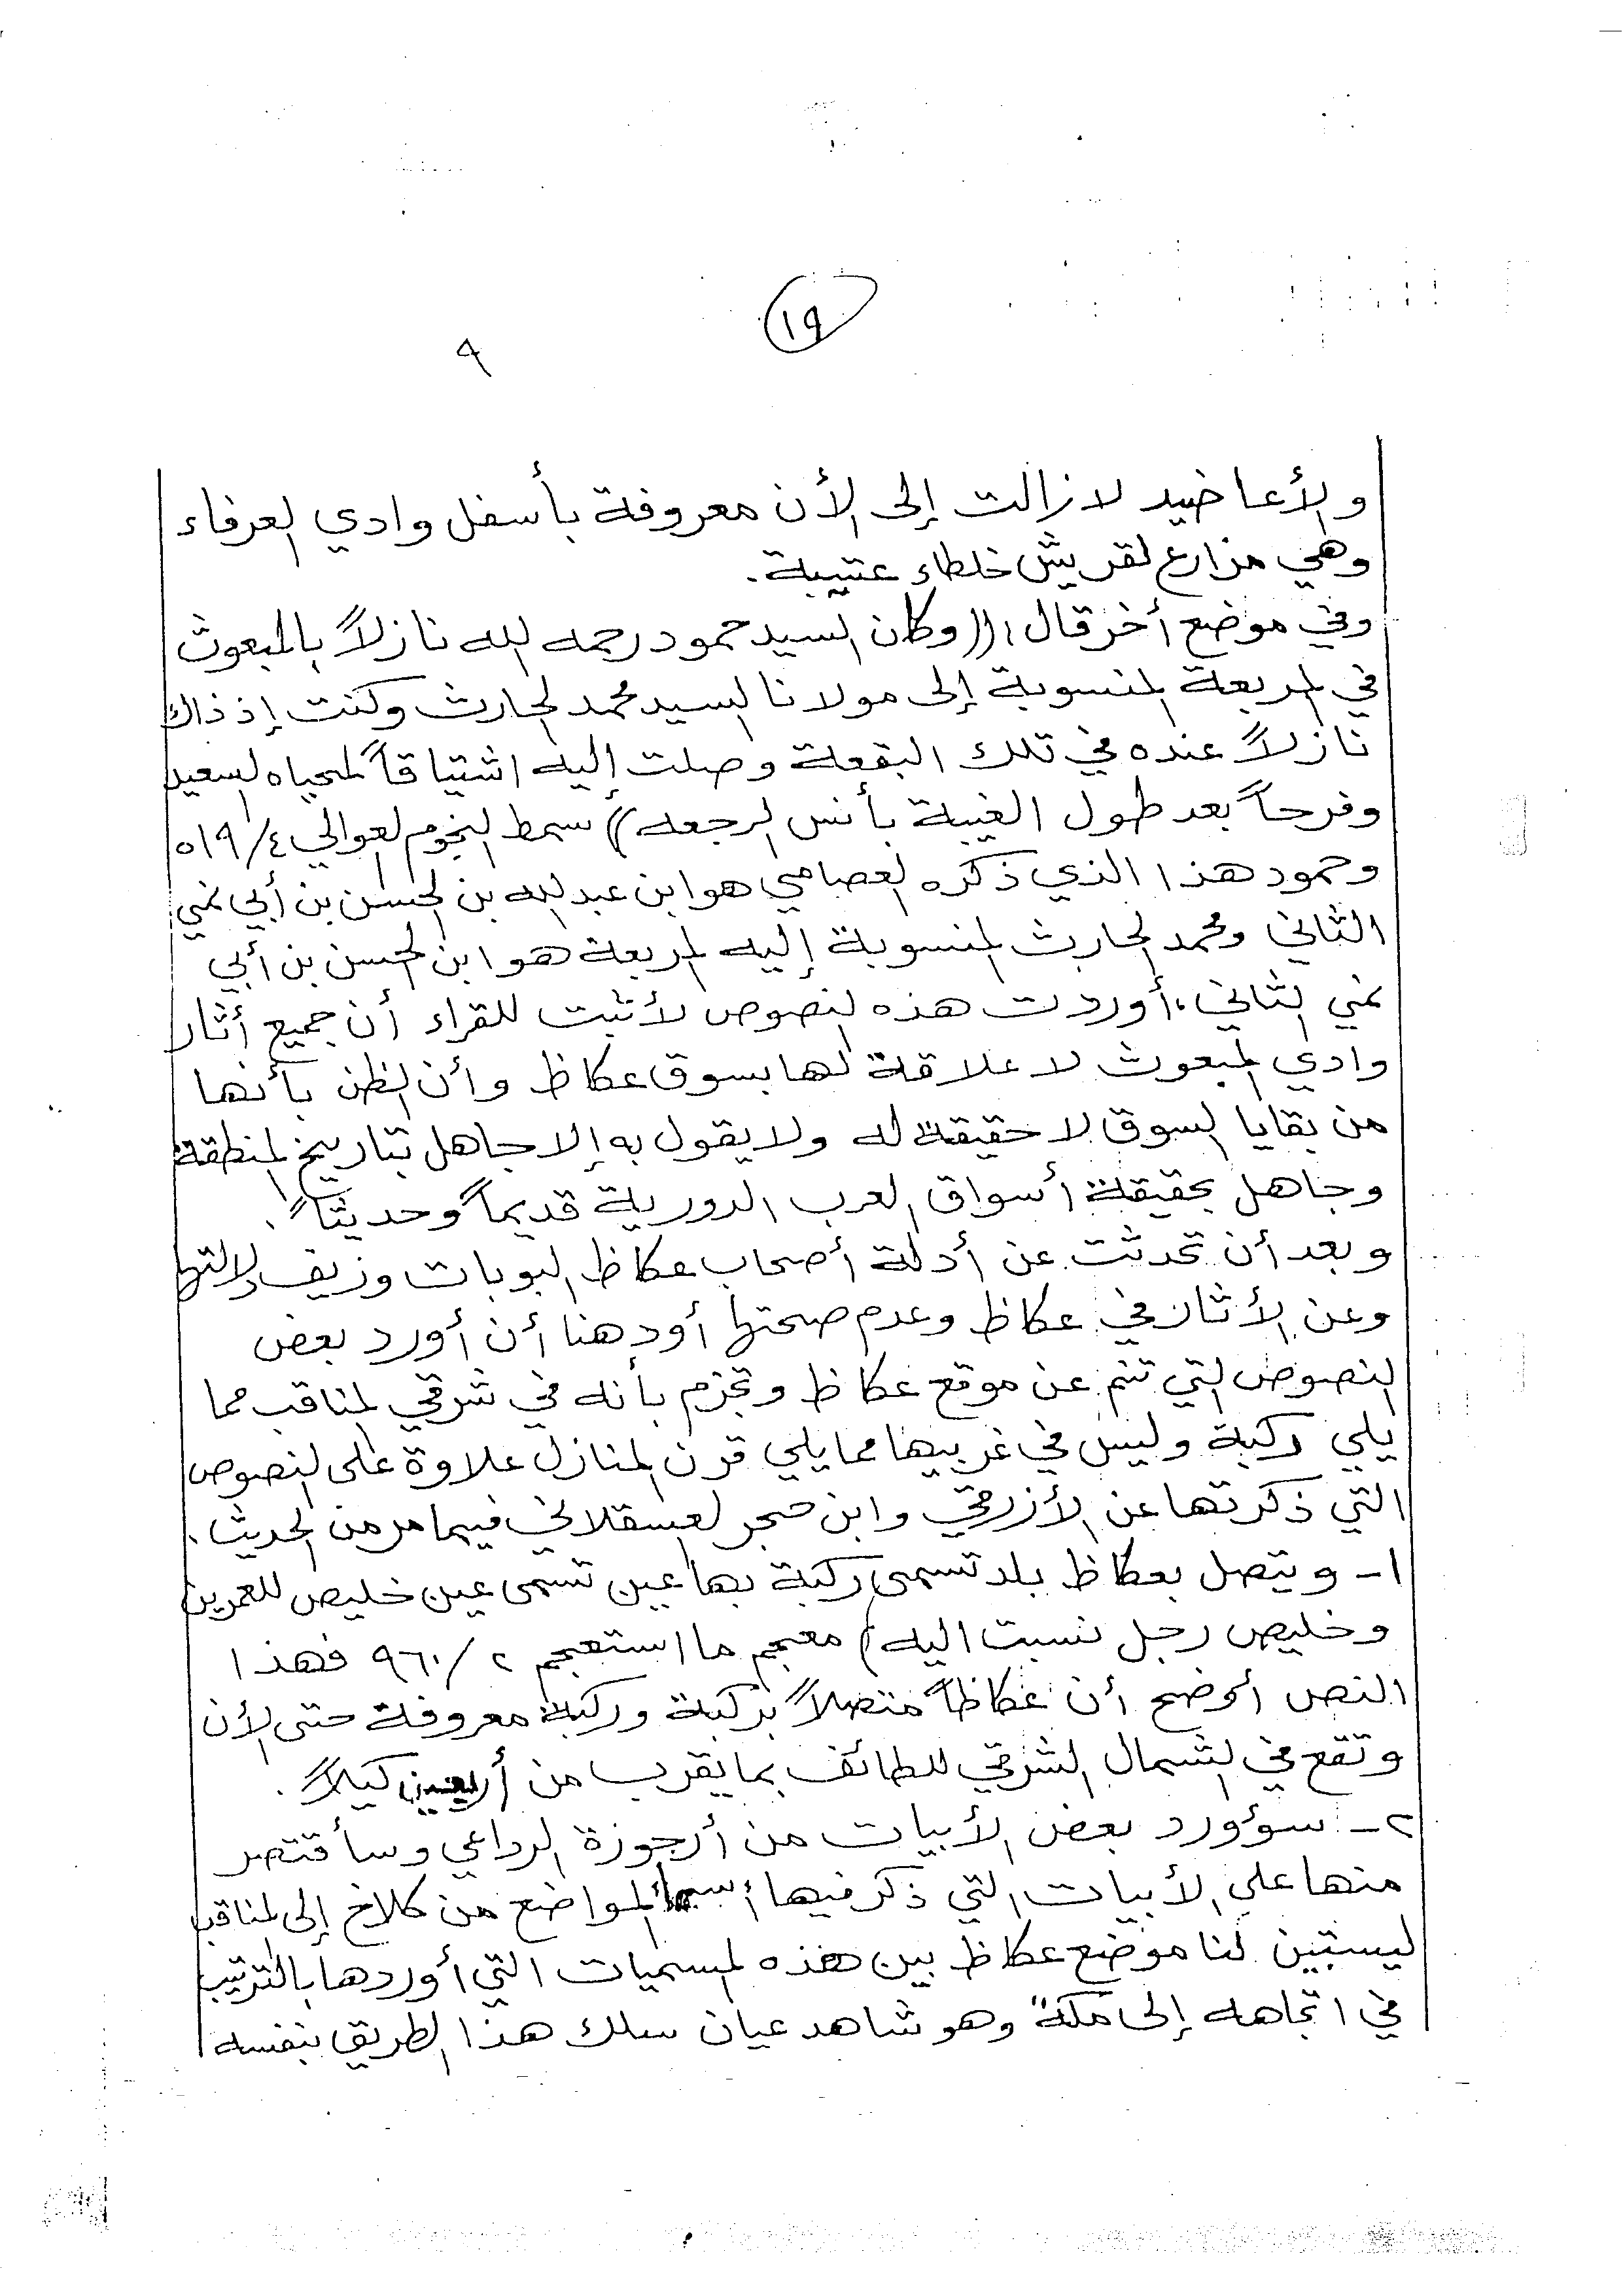 ١٩
٩
والأعاضيد لازالت إلى الأن معروفة بأسفل وادي العرفاء
وهي مزارع لقريش خلطاء عتيبة.
وفي موضع أخر قال: ((وكان السيد حمود رحمه الله نازلاً بالمبعوث
في المربعة المنسوبة إلى مولانا السيد محمد الحارث وكنت إذ ذاك
نازلاً عنده في تلك البقعة وصلت إليه اشتياقاً لمحياه السعيد
وفرحاً بعد طول الغيبة بأنس الرجعه)) سمط النجوم العوالي ٥١٩/٤
وحمود هذا الذي ذكره العصامي هو ابن عبد الله بن الحسن بن أبي نمي
الثاني ومحمد الحارث المنسوبة إليه المربعة هو ابن الحسن بن أبي
نمي الثاني، أوردت هذه النصوص لأثبت للقراء أن جميع أثار
وادي المبعوث لا علاقة لها بسوق عكاظ وأن الظن بأنها
من بقايا السوق لا حقيقة له ولا يقول به إلا جاهل بتاريخ المنطقة
وجاهل بحقيقة أسواق العرب الدورية قديماً وحديثاً.
وبعد أن تحدثت عن أدلة أصحاب عكاظ البوبات وزيف دلالتها
وعن الأثار في عكاظ وعدم صحتها أود هنا أن أورد بعض
النصوص التي تنم عن موقع عكاظ وتجزم بأنه في شرقي المناقب مما
يلي ركبة وليس في غربيها مما يلي قرن المنازل علاوة على النصوص
التي ذكرتها عن الأزرقي وابن حجر العسقلاني فيما مر من الحديث.
١- ويتصل بعكاظ بلد تسمى ركبة بها عين تسمى عين خليص للعمريين
وخليص رجل نسبت اليه) معجم ما استعجم ٩٦٠/٢ فهذا
النص أوضح أن عكاظاً متصلاً بركبة وركبة معروفة حتى الأن
وتقع في الشمال الشرقي للطائف بما يقرب من أربعين كيلاً.
٢- سؤورد بعض الأبيات من أرجوزة الرداعي وسأقتصر
منها على الأبيات التي ذكر فيها أسماء المواضع من كلاخ إلى المناقب
ليستبين لنا موضع عكاظ بين هذه المسميات التي أوردها بالترتيب
في اتجاهه إلى مكة وهو شاهد عيان سلك هذا الطريق بنفسه